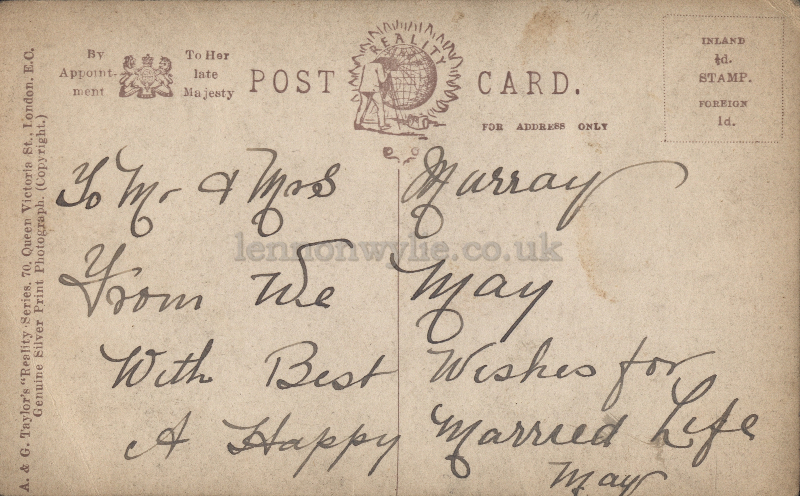 By Appointment
To Her late Majesty
POST CARD.
REALITY
FOR ADDRESS ONLY
INLAND
½d.
STAMP.
FOREIGN
1d.
A. & G. Taylor's "Reality" Series, 70, Queen Victoria St., London, E.C.
Genuine Silver Print Photograph. (Copyright.)
To Mr & Mrs Murray
lennonwylie.co.uk
From We May
With Best Wishes for
A Happy Married Life
May